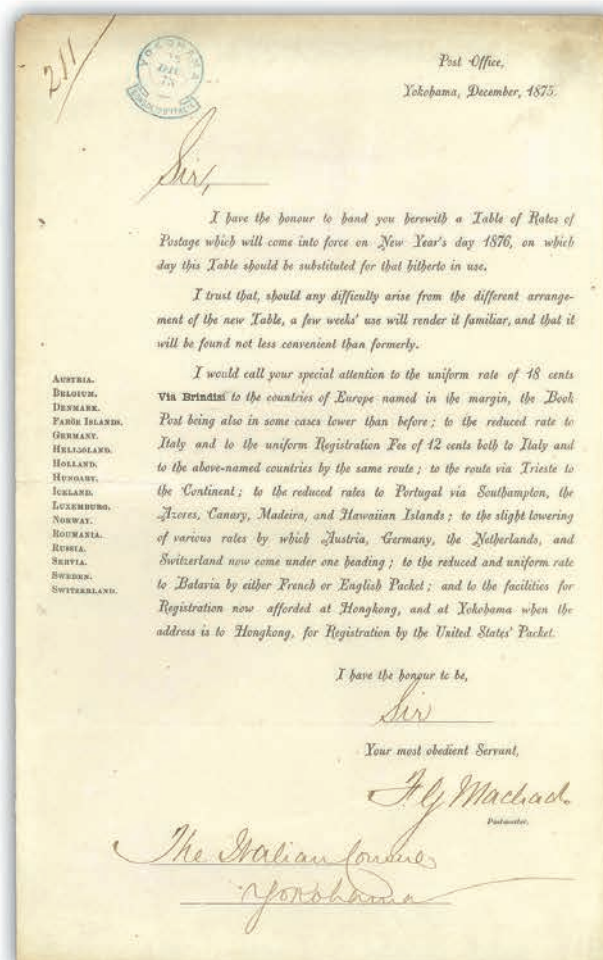 211
YOKOHAMA
Post Office,
Yokohama, December, 1875.
Sir,
I have the honour to hand you herewith a Table of Rates of
Postage which will come into force on New Year's day 1876, on which
day this Table should be substituted for that hitherto in use.
I trust that, should any difficulty arise from the different arrange-
ment of the new Table, a few weeks' use will render it familiar, and that it
will be found not less convenient than formerly.
I would call your special attention to the uniform rate of 18 cents
Via Brindisi to the countries of Europe named in the margin, the Book
Post being also in some cases lower than before; to the reduced rate to
Italy and to the uniform Registration Fee of 12 cents both to Italy and
to the above-named countries by the same route; to the route via Trieste to
the Continent; to the reduced rates to Portugal via Southampton, the
Azores, Canary, Madeira, and Hawaiian Islands; to the slight lowering
of various rates by which Austria, Germany, the Netherlands, and
Switzerland now come under one heading; to the reduced and uniform rate
to Batavia by either French or English Packet; and to the facilities for
Registration now afforded at Hongkong, and at Yokohama when the
address is to Hongkong, for Registration by the United States' Packet.
AUSTRIA.
BELGIUM.
DENMARK.
FARÖE ISLANDS.
GERMANY.
HELIGOLAND.
HOLLAND.
HUNGARY.
ICELAND.
LUXEMBURG.
NORWAY.
ROUMANIA.
RUSSIA.
SERVIA.
SWEDEN.
SWITZERLAND.
I have the honour to be,
Sir
Your most obedient Servant,
F G Machado
Postmaster.
The Italian
Yokohama